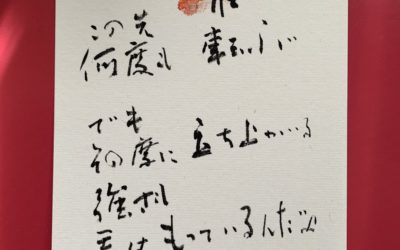 この先
何度も 転ぶ
でも
その度に 立ち上がる
強さも
もっているんだよ